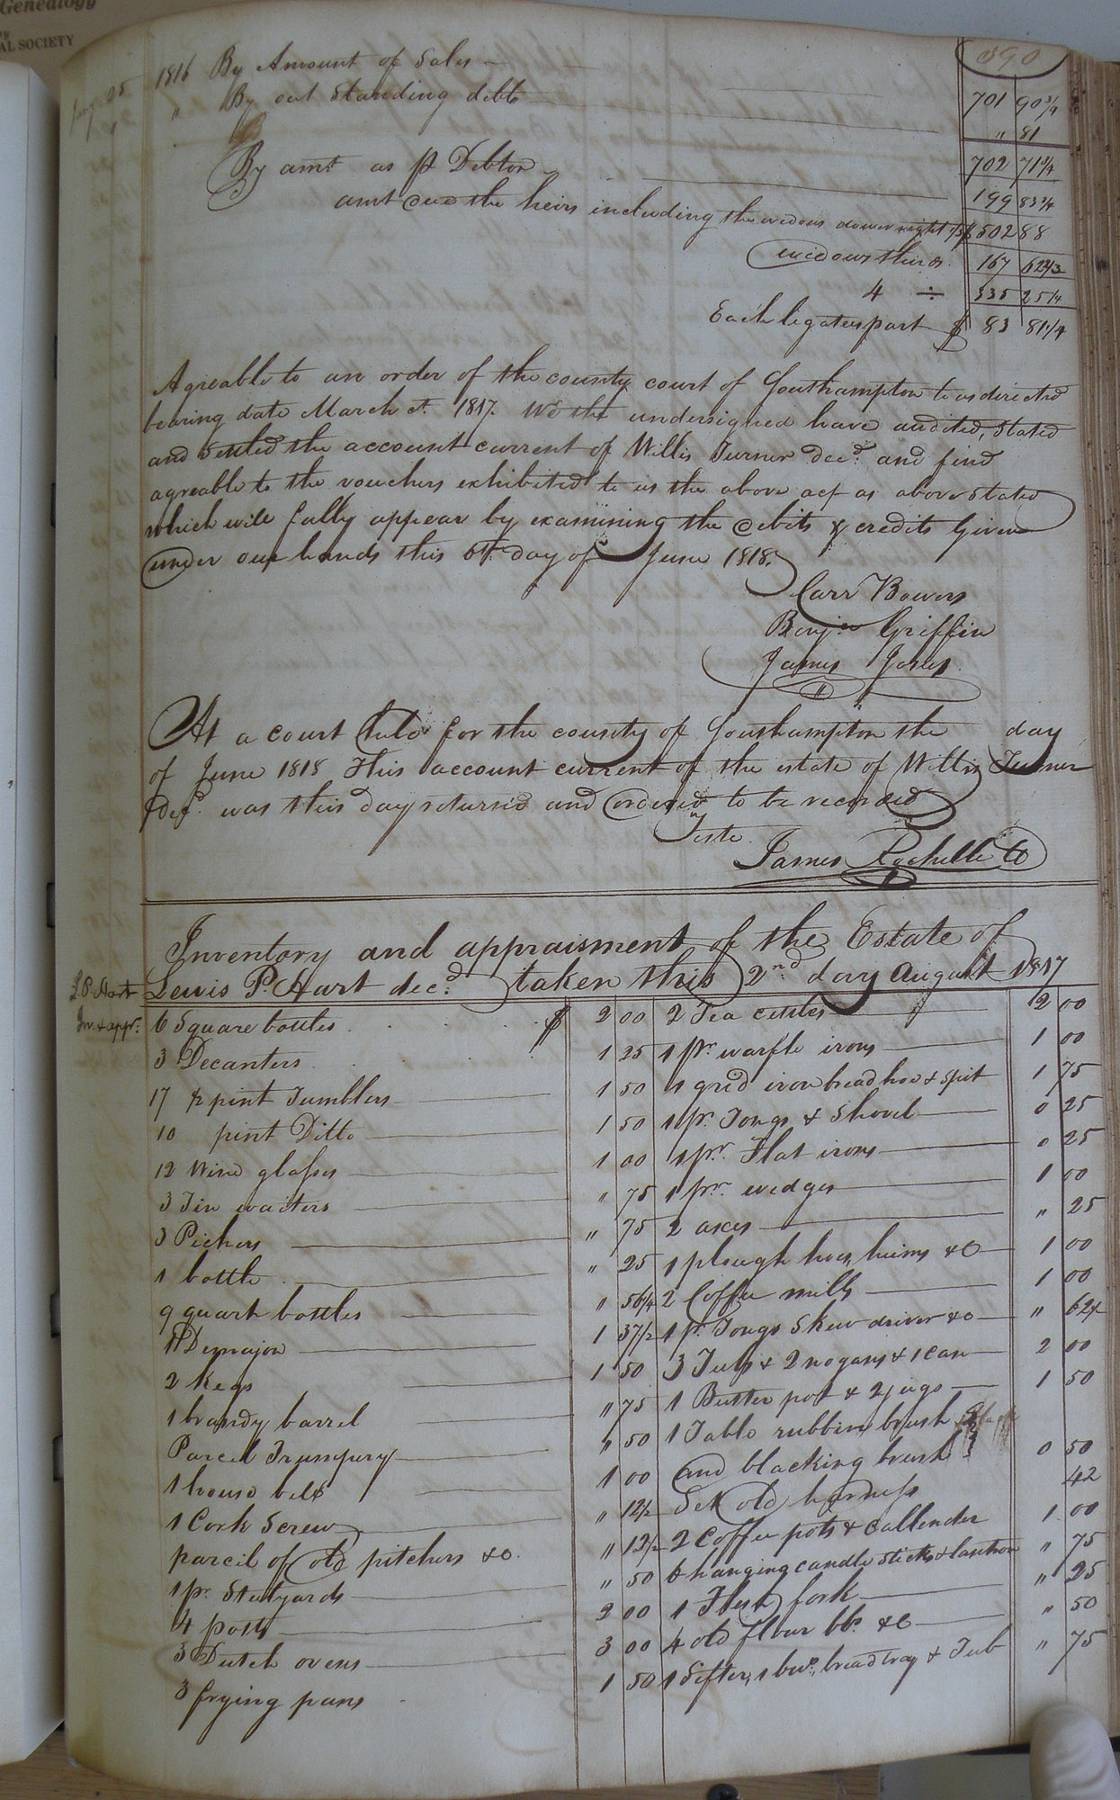 Genealogy
AL SOCIETY
390
1816 By Amount of Sales 701 90 3/4
" By out Standing debts " 81
By amt. as pr Debtor 702 71 3/4
199 83 3/4
amt due the heirs including the widows dower right is $ 502 88
widows thirds 167 62 2/3
4 ÷ 335 25 1/4
Each legatees part $ 83 81 1/4
Agreable to an order of the county court of Southampton to us directed
bearing date March Ct. 1817. We the undersigned have audited, stated
and settled the account current of Willis Turner decd. and find
agreable to the vouchers exhibited to us the above act as above stated
which will fully appear by examining the debits & credits Given
under our hands this 6th. day of June 1818.
Carr Bowers
Benja. Griffin
James Jones
At a court held for the county of Southampton the day
of June 1818 This account current of the estate of Willis Turner
decd. was this day returned and ordered to be recorded
Teste
James Rochelle CC
Inventory and appraisment of the Estate of
L. P. Hart Lewis P. Hart decd. taken this 2nd day August 1817
Inv. & appr. 6 Square bottles $ 2 00 2 Tea cettles 2 00
3 Decanters 1 25 1 pr. warfle irons 1 00
17 1/2 pint Tumblers 1 50 1 grid iron bread hoe & Spit 1 75
10 pint Ditto 1 50 1 pr. Tongs & Shovel 0 25
12 Wine glasses 1 00 1 pr. Flat irons 0 25
3 Tin waiters " 75 1 pr. wedges 1 00
3 Pichers " 75 2 axes " 25
1 bottle " 25 1 plough hoes, haims &c 1 00
9 quart bottles " 56 1/4 2 Coffee mills 1 00
1 Demajon 1 37 1/2 1 pr. Tongs Skew driver &c " 62 1/2
2 Kegs 1 50 3 Tubs & 2 nogans & 1 can 2 00
1 brandy barrel " 75 1 Butter pot & 2 jugs 1 50
Parcel Trumpury " 50 1 Table rubbing brush
1 house bell 1 00 and blacking brush 0 50
1 Cork Screw " 12 1/2 Set old harness 42
parcil of old pitchers &c. " 12 1/2 2 Coffee pots & Callender 1 00
1 pr. Stilyards " 50 6 hanging candle sticks & lanthon " 75
4 potts 2 00 1 Flesh fork " 25
3 Dutch ovens 3 00 4 old flour bbs. &c " 50
3 frying pans 1 50 1 Sifter, 1 bread tray & Tub " 75